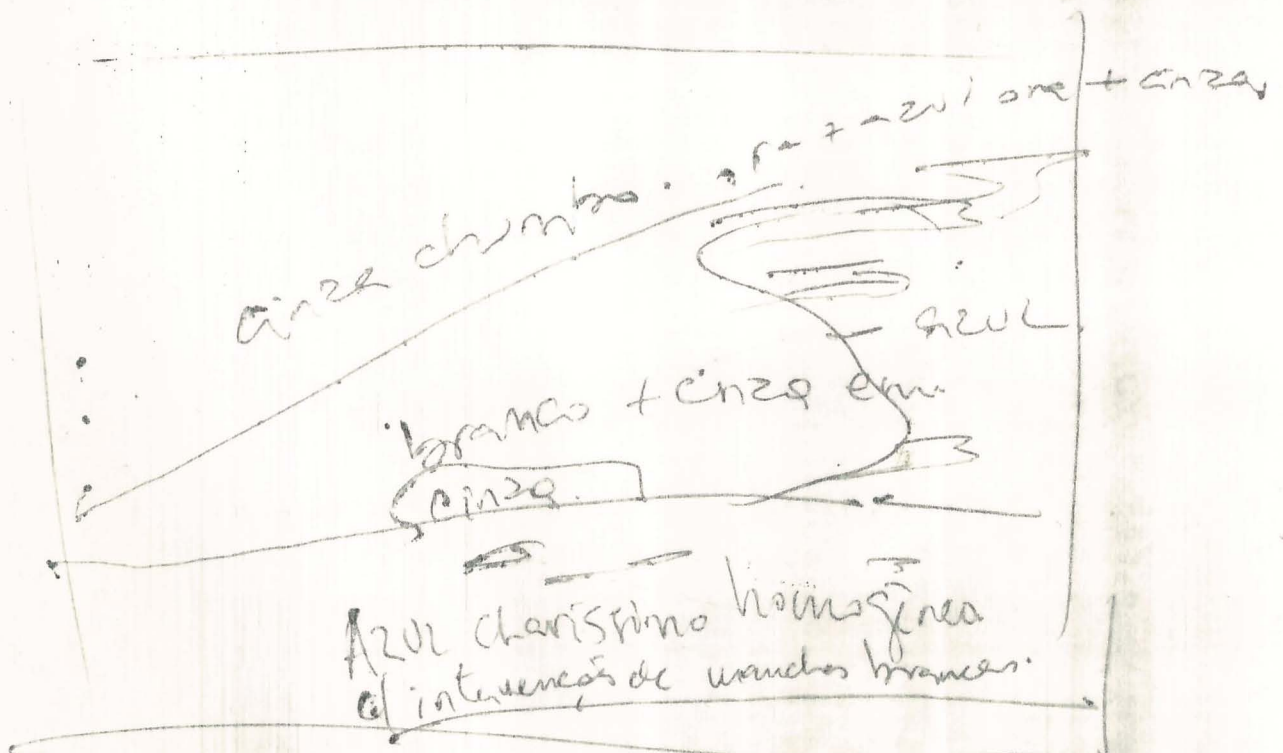 + cinza
cinza chumbo
AZUL
branco + cinza em
cinza
AZUL claríssimo homogêneo
c/ intervenções de manchas brancas.